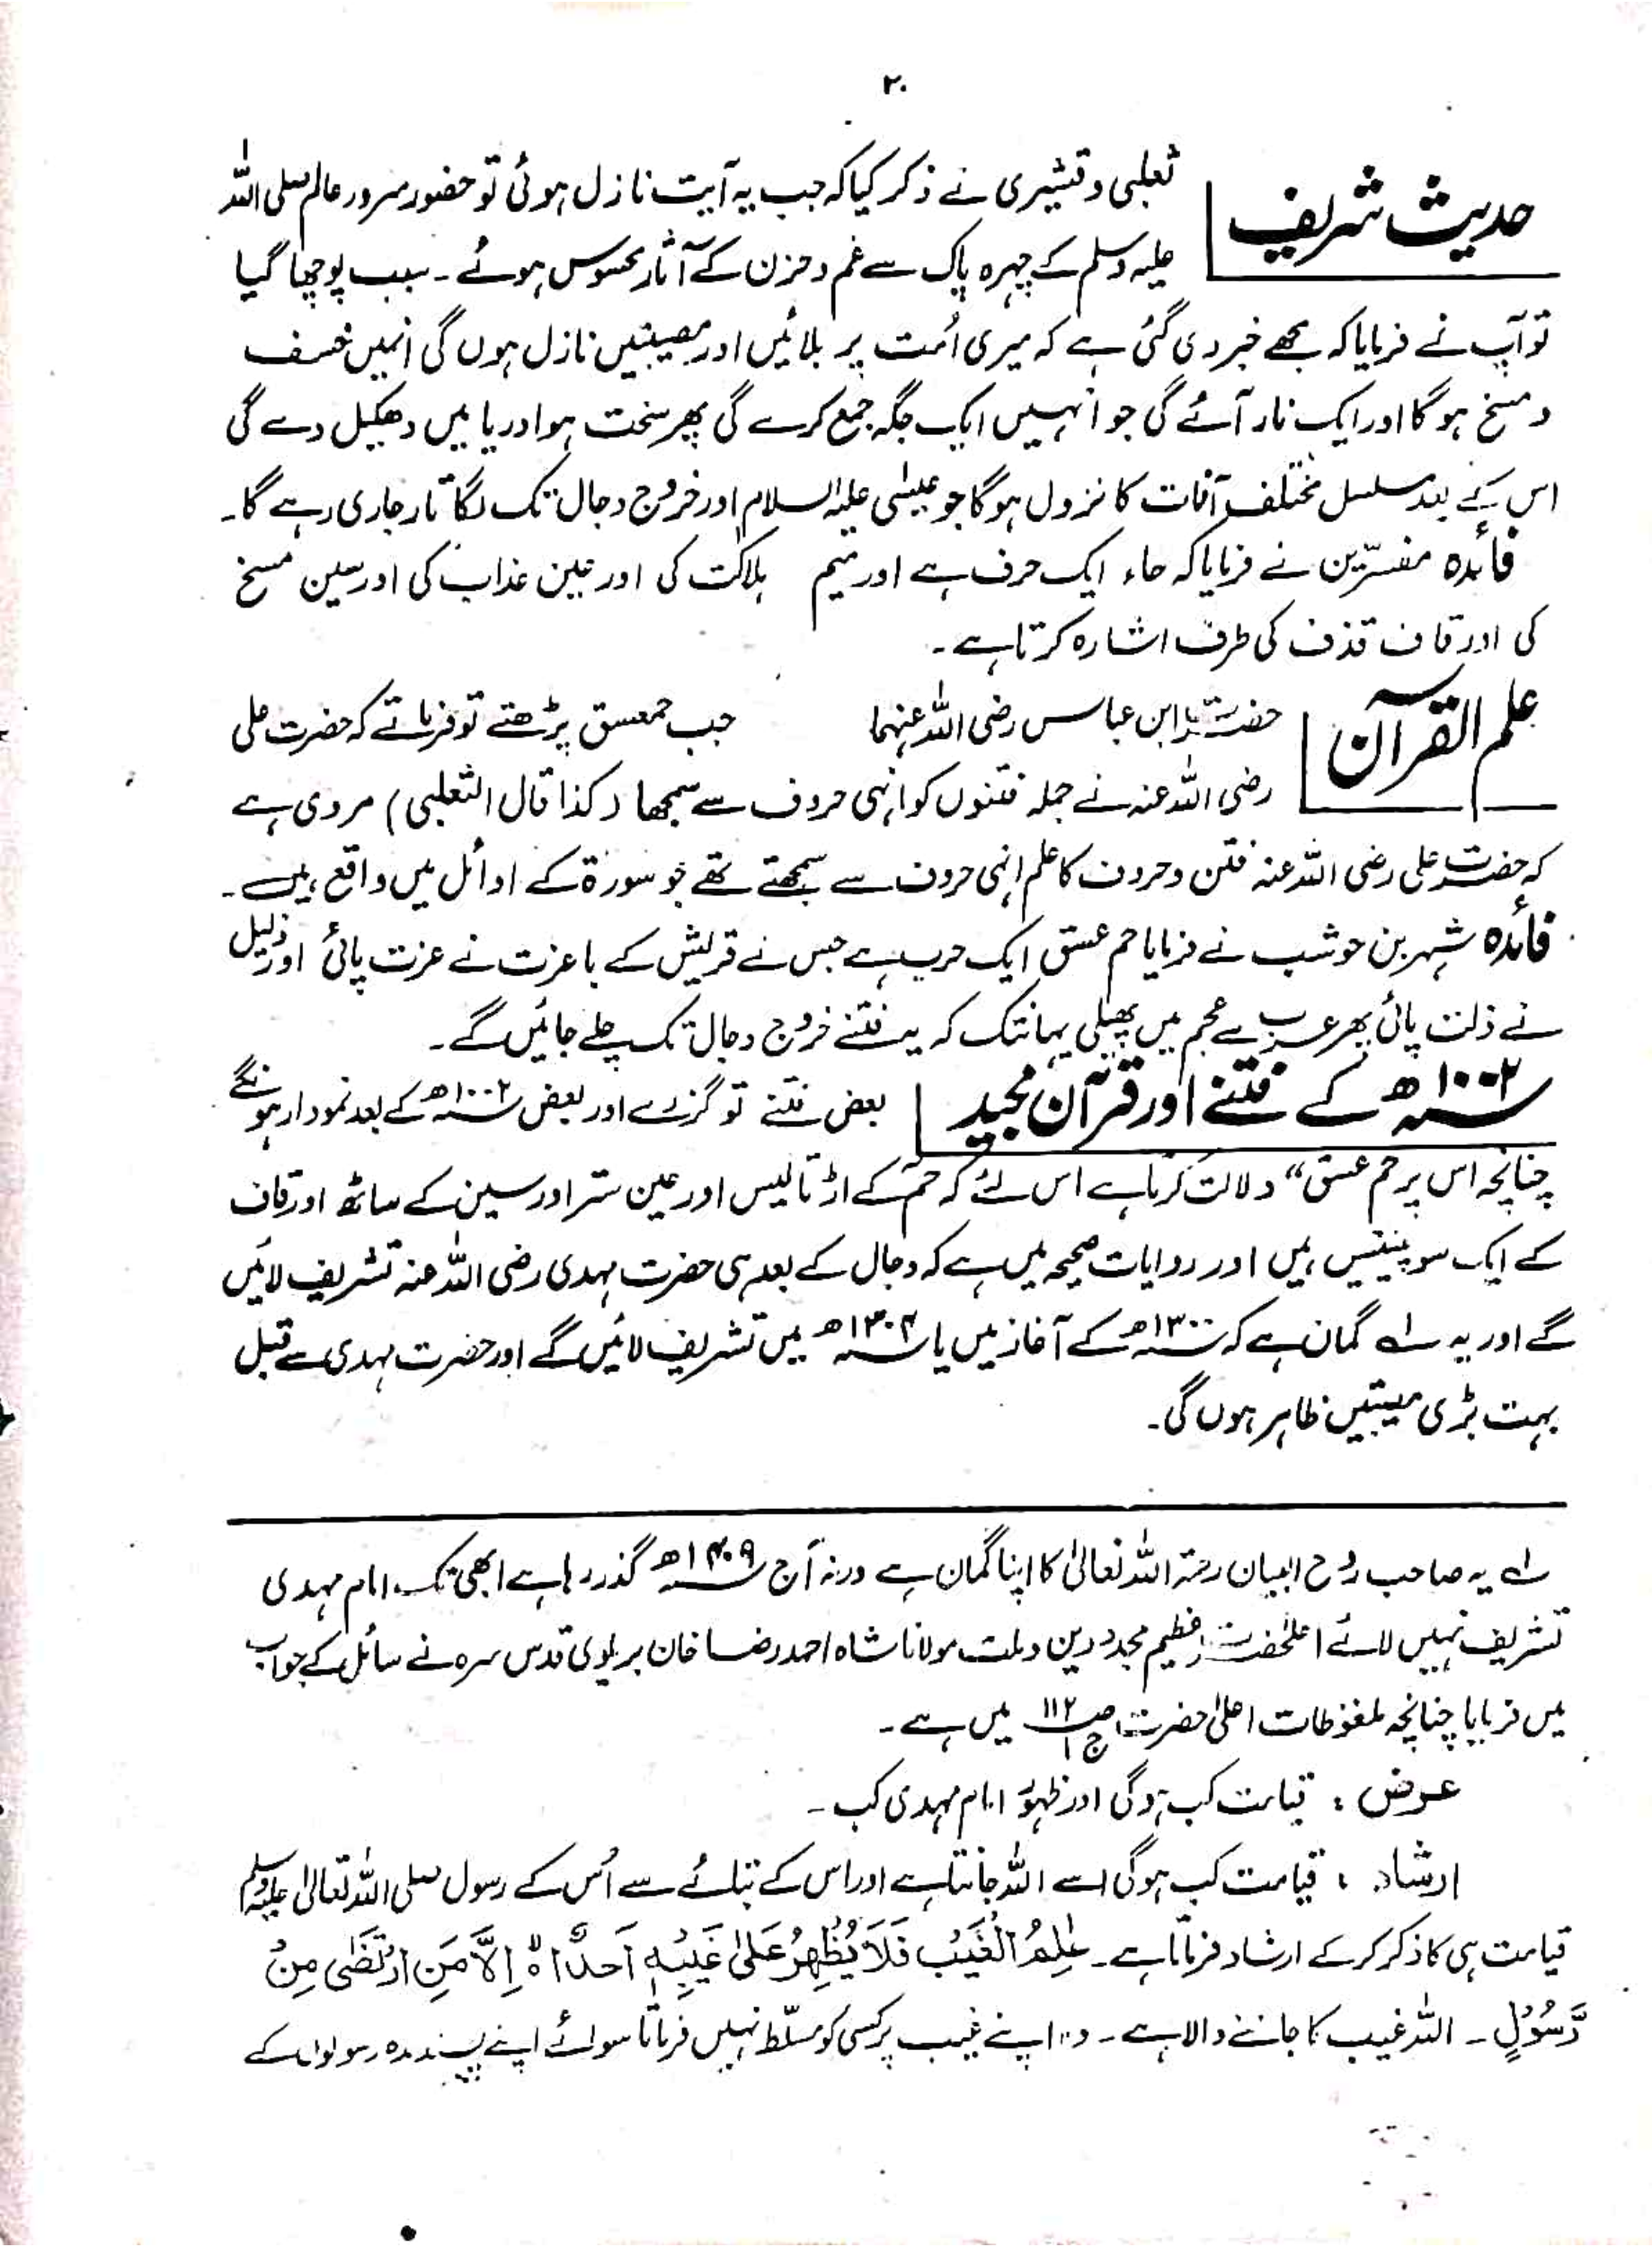 ۲۰
حدیث شریف
ثعلبی و قشیری نے ذکر کیا کہ جب یہ آیت نازل ہوئی تو حضور سرور عالم صلی اللہ
علیہ وسلم کے چہرہ پاک سے غم و حزن کے آثار محسوس ہوئے ۔ سبب پوچھا گیا
تو آپ نے فرمایا کہ مجھے خبر دی گئی ہے کہ میری اُمت پر بلائیں اور مصیبتیں نازل ہوں گی انہیں خسف
و مسخ ہو گا اور ایک نار آئے گی جو انہیں ایک جگہ جمع کرے گی پھر سخت ہوا دریا میں دھکیل دے گی
اس کے بعد مسلسل مختلف آفات کا نزول ہو گا جو عیسٰی علیہ السلام اور خروج دجال تک لگا تار جاری رہے گا۔
فائدہ مفسّرین نے فرمایا کہ حاء ایک حرف ہے اور میم ہلاکت کی اور عین عذاب کی اور سین مسخ
کی اور قاف قذف کی طرف اشارہ کرتا ہے ۔
علم القرآن
حضرت ابن عباس رضی اللہ عنہما جب حمعسق پڑھتے تو فرماتے کہ حضرت علی
رضی اللہ عنہ نے جملہ فتنوں کو انہی حروف سے سمجھا (کذا قال الثعلبی) مروی ہے
کہ حضرت علی رضی اللہ عنہ فتن و حروف کا علم انہی حروف سے سمجھتے تھے جو سورۃ کے اوائل میں واقع ہیں ۔
فائدہ شہر بن حوشب نے فرمایا حم عسق ایک حرب ہے جس نے قریش کے با عزت نے عزت پائی اور ذلیل
نے ذلت پائی پھر عرب سے عجم میں پھیلی یہانتک کہ یہ فتنے خروج دجال تک چلے جائیں گے ۔
۱۰۰۲ھ کے فتنے اور قرآن مجید
بعض فتنے تو گزرے اور بعض ۱۰۰۲ھ کے بعد نمودار ہونگے
چنانچہ اس پر حم عسق“ دلالت کرتا ہے اس لئے کہ حمٓ کے اڑتالیس اور عین ستر اور سین کے ساٹھ اور قاف
کے ایک سو پینتیس ہیں اور روایات صحیحہ میں ہے کہ دجال کے بعد ہی حضرت مہدی رضی اللہ عنہ تشریف لائیں
گے اور یہ لے گمان ہے کہ ۱۳۰۰ھ کے آغاز میں یا ۱۳۰۴ھ میں تشریف لائیں گے اور حضرت مہدی سے قبل
بہت بڑی مصیبتیں ظاہر ہوں گی ۔
لے یہ صاحب روح البیان رحمۃ اللہ تعالیٰ کا اپنا گمان ہے ورنہ آج ۱۴۰۹ھ گذر رہا ہے ابھی تک امام مہدی
تشریف نہیں لائے اعلٰحضرت عظیم مجدد دین و ملت مولانا شاہ احمد رضا خان بریلوی قدس سرہ نے سائل کے جواب
میں فرمایا چنانچہ ملفوظات اعلیٰ حضرت ص ۱۱۲ ج ۱ میں ہے ۔
عرض : قیامت کب ہو گی اور ظہور امام مہدی کب ۔
ارشاد : قیامت کب ہو گی اسے اللہ جانتا ہے اور اس کے بتائے سے اُس کے رسول صلی اللہ تعالیٰ علیہ وسلم
قیامت ہی کا ذکر کر کے ارشاد فرماتا ہے ۔ عٰلِمُ الْغَیْبِ فَلَا یُظْهِرُ عَلٰی غَیْبِهٖ اَحَدًا ہ اِلَّا مَنِ ارْتَضٰی مِنْ
رَّسُوْلٍ ۔ اللہ غیب کا جاننے والا ہے ۔ وہ اپنے غیب پر کسی کو مسلّط نہیں فرماتا سوائے اپنے پسندیدہ رسولوں کے